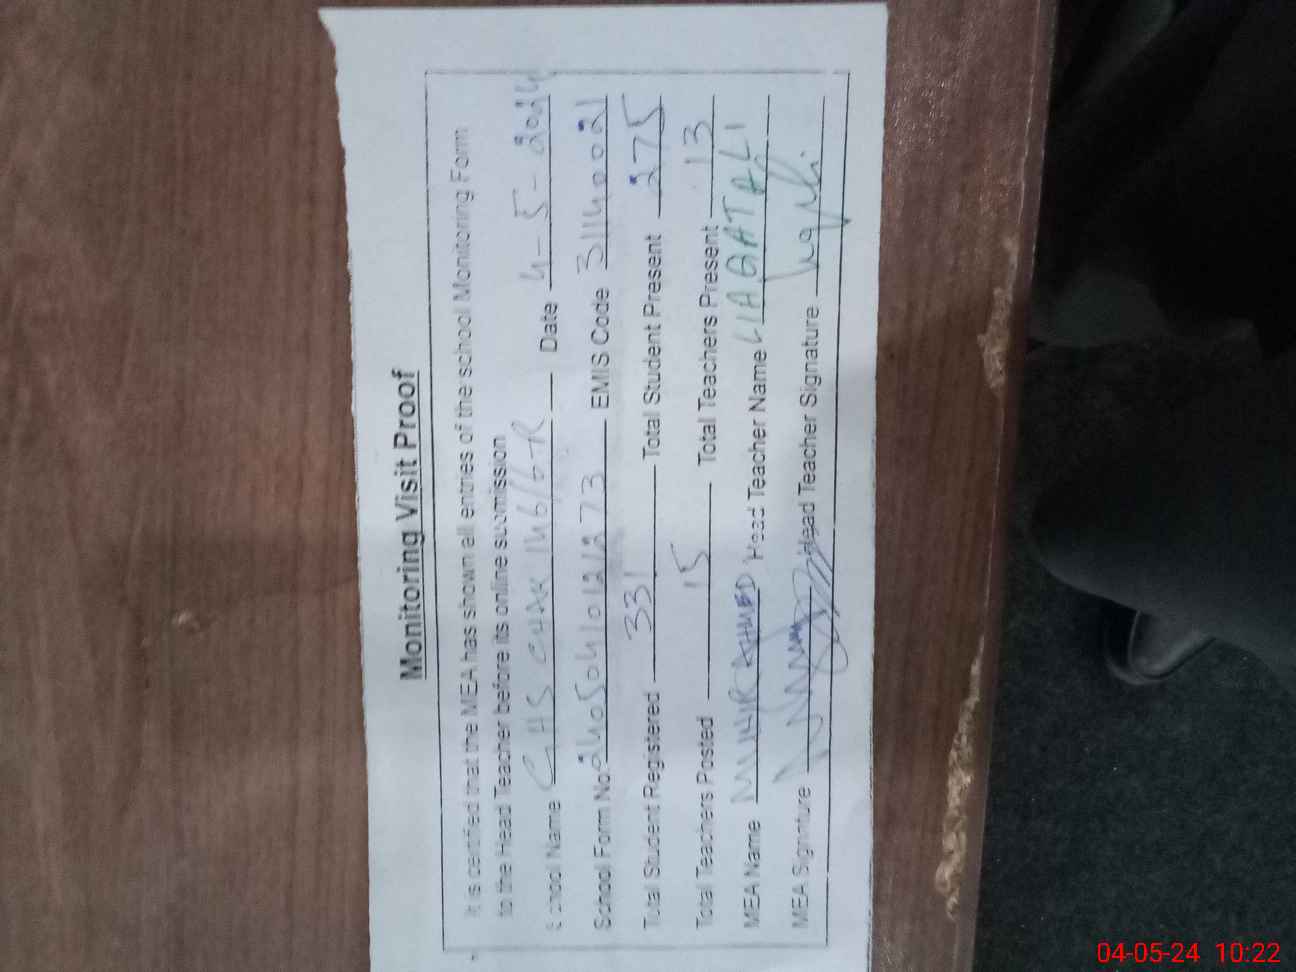 Monitoring Visit Proof
It is certified that the MEA has shown all entries of the school Monitoring Form
to the Head Teacher before its online submission
School Name GHS CHAK 146/6-R Date 4-5-2024
School Form No. 2405041012/273 EMIS Code 31140021
Total Student Registered 331 Total Student Present 275
Total Teachers Posted 15 Total Teachers Present 13
MEA Name AHMED Head Teacher Name LIAQAT ALI
MEA Signature Head Teacher Signature
04-05-24 10:22